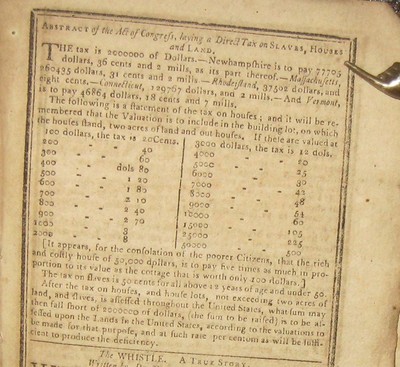 ABSTRACT of the Act of Congress, laying a Direct Tax on SLAVES, HOUSES
and LAND.
THE tax is 2000000 of Dollars.—Newhampshire is to pay 77705
dollars, 36 cents and 2 mills, as its part thereof.—Massachusetts,
260435 dollars, 31 cents and 2 mills.—Rhodeisland, 37502 dollars, and
eight cents.—Connecticut, 129767 dollars, and 2 mills.—And Vermont,
is to pay 46864 dollars, 18 cents and 7 mills.
The following is a statement of the tax on houses; and it will be re-
membered that the Valuation is to include in the building lot, on which
the houses stand, two acres of land and out houses. If these are valued at
100 dollars, the tax is 20 Cents.
200 " " 40
300 " " 60
400 " dols 80
500 " " 1 20
600 " " 1 80
700 " " 2 10
800 " " 2 40
900 " " 2 70
1000 " " 3
2000 " " 8
3000 dollars, the tax is 12 dols.
4000 " " 20
5000 " " 25
6000 " " 30
7000 " " 42
8000 " " 48
9000 " " 54
10000 " " 60
15000 " " 105
25000 " " 225
50000 " " 500
[It appears, for the consolation of the poorer Citizens, that the rich
and costly house of 50,000 dollars, is to pay five times as much in pro-
portion to its value as the cottage that is worth only 100 dollars.]
The tax on slaves is 50 cents for all above 12 years of age and under 50.
After the tax on houses, and house lots, not exceeding two acres of
land, and slaves, is assessed throughout the United States, what sum may
then fall short of 2000000 of dollars, (the sum to be raised) is to be as-
sessed upon the Lands in the United States, according to the valuations to
be made for that purpose, and at such rate per centum as will be suffi-
cient to produce the deficiency.
The WHISTLE. A TRUE STORY.